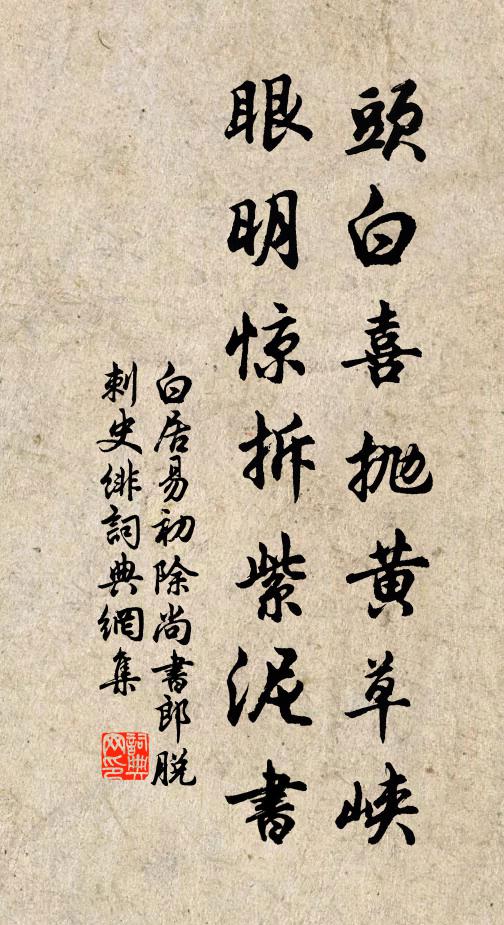 頭白喜抛黄草峽
眼明惊拆紫泥書
白居易初除尚書郎脫
刺史緋詞典網集
詞典网印